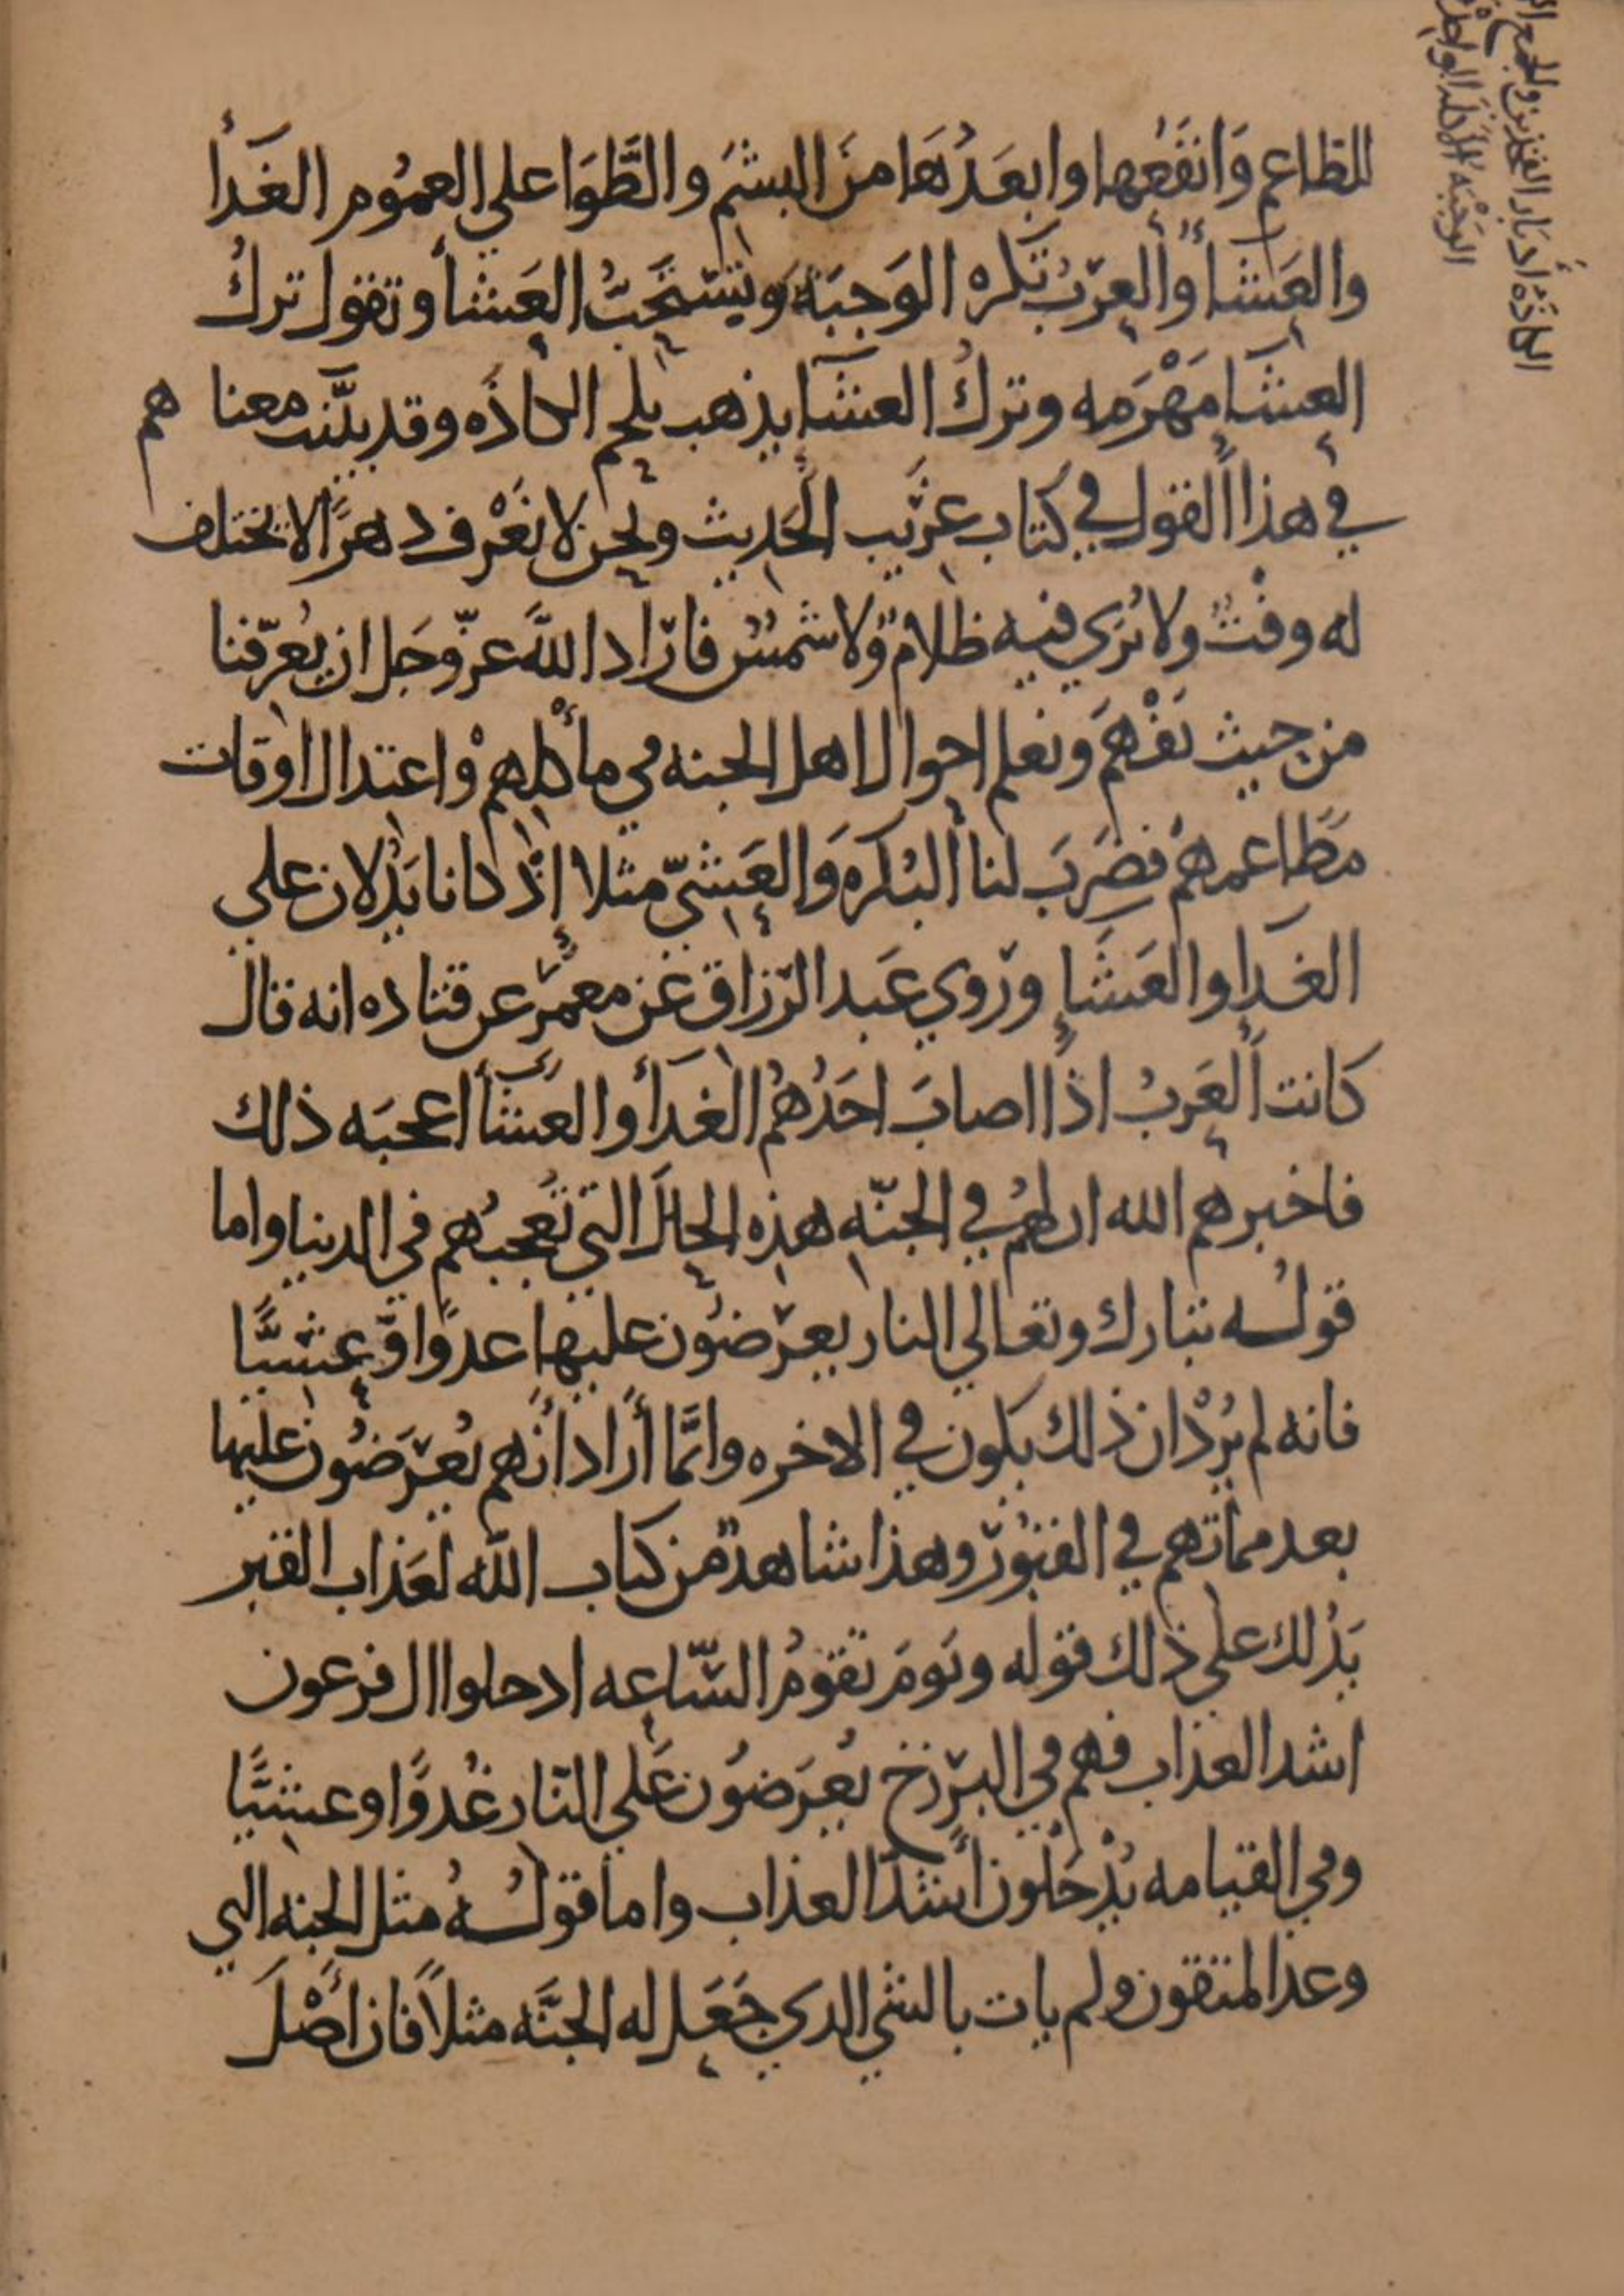 للطاعم وَانفَعُها وابعَدُهَا منَ البشَمِ والطَّوَا علي العمُوم الغَدأ
والعَشأ والعرَبُ تكره الوَجبَة وَيَستحَبُّ العَشأ وتقول تركُ
العشا مَهْرَمه وتركُ العشا يذهب بلحم الكاذَه وقد بيَّنت معنا هم
في هذا القول في كتاب غرَيب الحَديث ونحن لا نَعْرف دهرًا لا يختلف
له وقتٌ ولا يُري فيه ظلامٌ ولا شمسٌ فارَاد اللهَ عزّ وجَل ان يُعرّفنا
من حيث نَفْهَم ونعلم احوال اهل الجنه في مأكلهم واعتدال اوقات
مطَاعمهمُ فضَرَبَ لنا البُكره وَالعَشيّ مثلا إذْ كانا يَدُلان علي
الغدا والعَشَا ورَوي عَبد الرّزاق عَن معمَر عن قتاده انه قال
كانت العَربُ اذا اصابَ احَدُهُم الغَدأ والعَشأ اعجبَه ذلك
فاخبرهم الله ان لهمُ في الجنّه هذه الحال التي تُعجبُهم في الدنيا واما
قولُه تبارك وتعالي النار يعرَضوُن عليها عدوًا وّعشيًّا
فانه لم يُردْ ان ذلك يكون في الاخره وانَّما أراد أنهم يُعرَضوُن عليها
بعد مماتهم في القبُور وهذا شاهدٌ من كتاب اللّه لعَذاب القبر
يَدُلك علي ذلك قوله ويَومَ تقومُ السّاعه ادحلوا ال فرعون
اشد العذاب فهم في البرَزخ يُعرَضوُن عَلي النّار غُدوًا وعشيًّا
وفي القيامه يُدْخَلون أشدّ العذاب واما قولُهُ مثل الجنه التي
وعدَ المتقون ولم يات بالشي الدي جَعَل له الجنَّه مثلاً فان أصْلَ